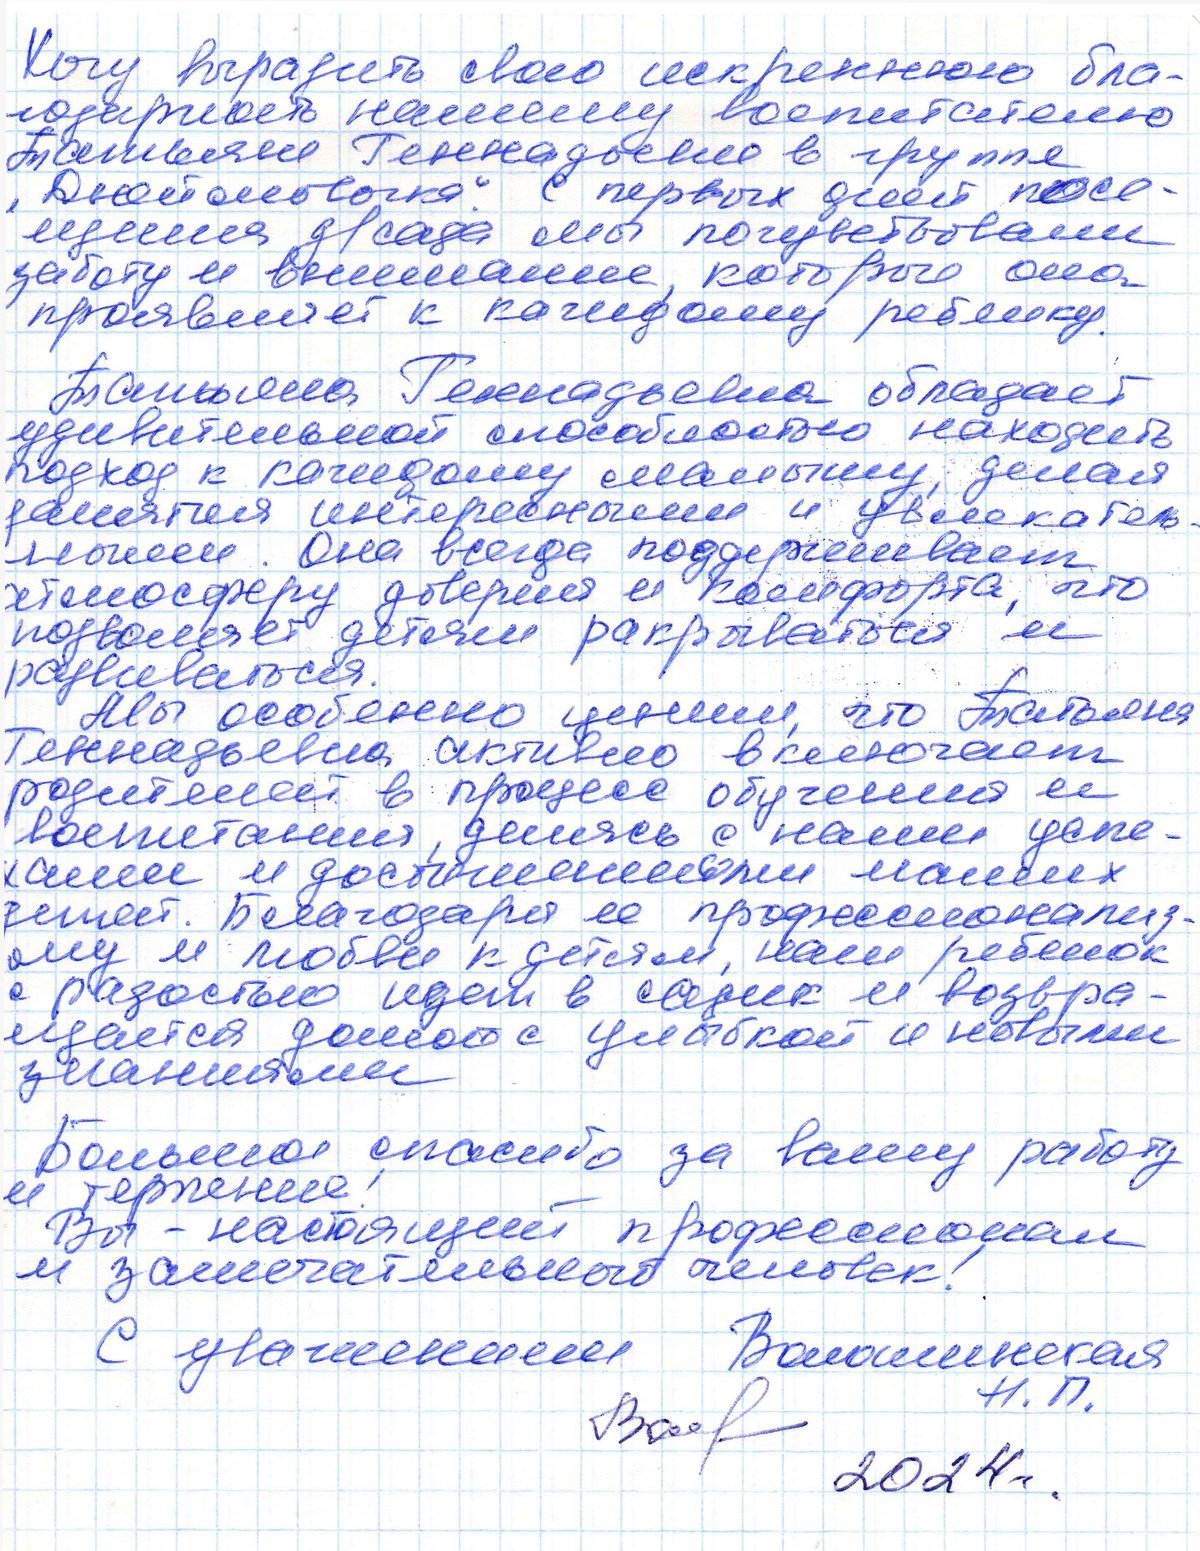 Хочу выразить свою искреннюю бла-
годарность нашему воспитателю
Татьяне Геннадьевне в группе
„Дюймовочка". С первых дней посе-
щения д/сада мы почувствовали
заботу и внимание, которые она
проявляет к каждому ребенку.
Татьяна Геннадьевна обладает
удивительной способностью находить
подход к каждому малышу, делая
занятия интересными и увлекатель-
ными. Она всегда поддерживает
атмосферу доверия и комфорта, что
позволяет детям ракрываться и
развиваться.
Мы особенно ценим, что Татьяна
Геннадьевна активно включает
родителей в процесс обучения и
воспитания, делясь с нами успе-
хами и достижениями наших
детей. Благодаря ее профессионализ-
му и любви к детям, наш ребенок
с радостью идет в садик и возвра-
щается домой с улыбкой и новыми
знаниями
Большое спасибо за вашу работу
и терпение!
Вы - настоящий профессионал
и замечательный человек!
С уважением Волошинская
Н. П.
2024г.